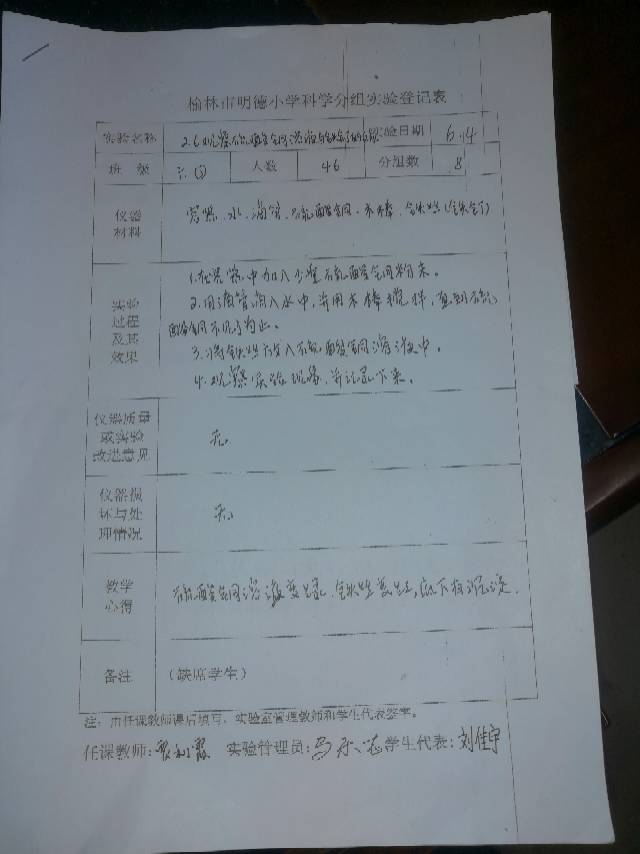 榆林市明德小学科学分组实验登记表
实验名称 2.6观察硫酸铜溶液与铁钉的反应 实验日期 6.14
班 级 六.(3) 人数 46 分组数 8
仪器材料 烧杯、水、滴管、硫酸铜、木棒、铁丝(铁钉)
实验过程及其效果
1.在烧杯中加入少量硫酸铜粉末。
2.用滴管滴入水中,并用木棒搅拌,直到硫
酸铜不见了为止。
3.将铁丝放入硫酸铜溶液中。
4.观察实验现象,并记录下来。
仪器质量或实验改进意见 无
仪器损坏与处理情况 无
教学心得 硫酸铜溶液变绿,铁丝变红,底下有沉淀.
备注 (缺席学生)
注:由任课教师课后填写,实验室管理教师和学生代表签字。
任课教师: 实验管理员:马 学生代表:刘佳宇